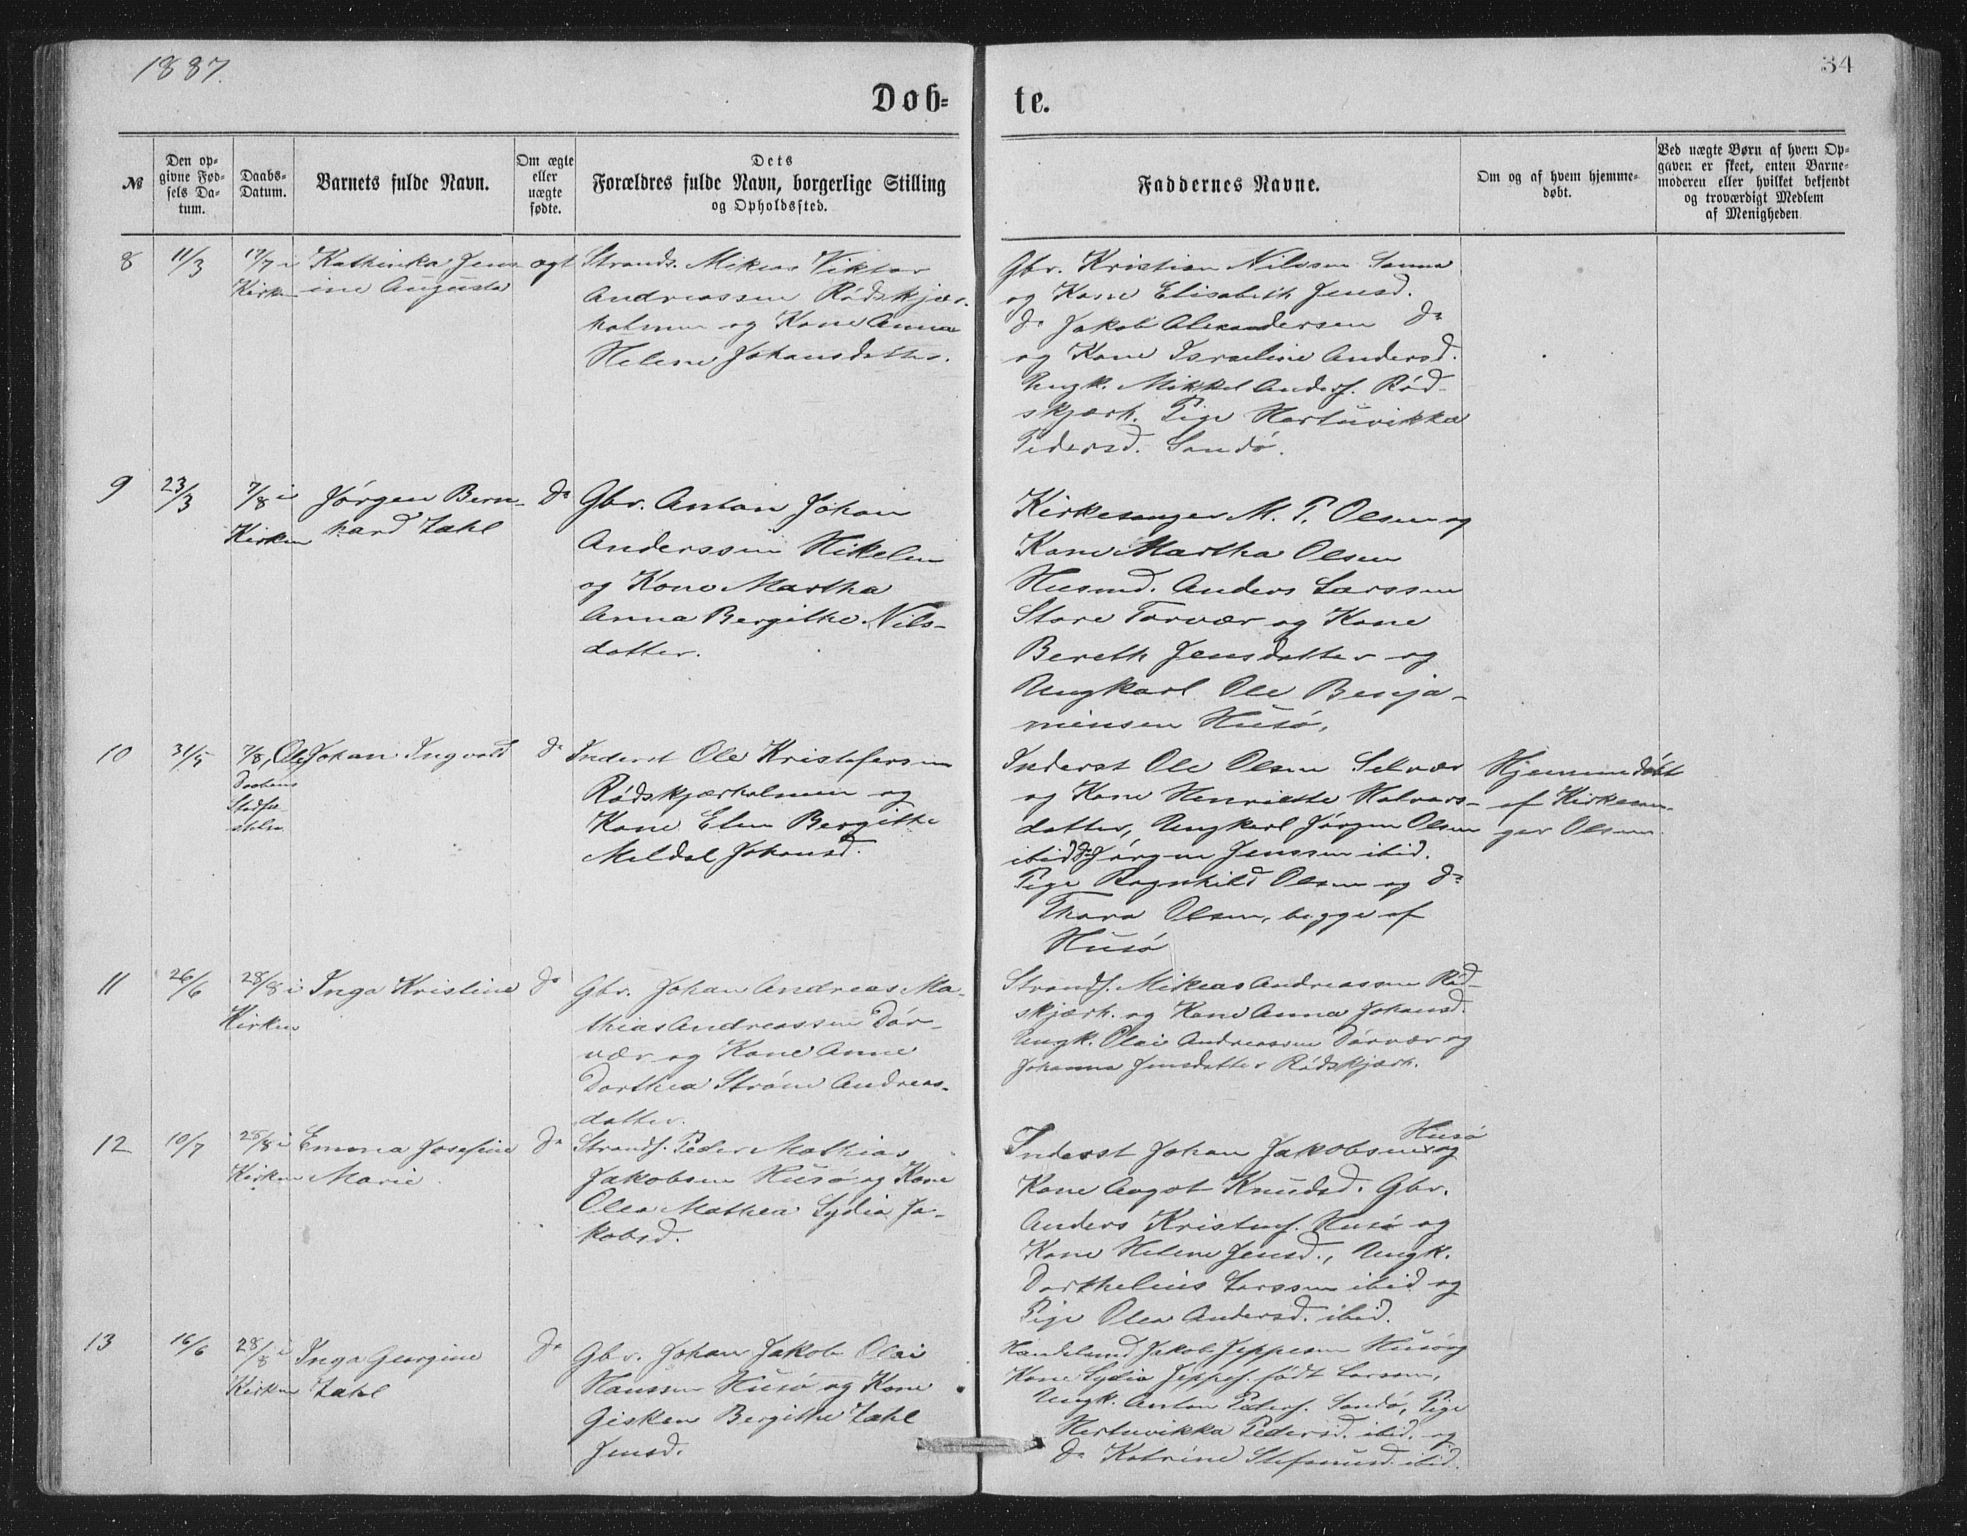 1887.
34
Døb-
te.
№
Den op-
givne Fød-
sels Da-
tum.
Daabs-
Datum.
Barnets fulde Navn.
Om ægte
eller
uægte
fødte.
Dets
Forældres fulde Navn, borgerlige Stilling
og Opholdssted.
Faddernes Navne.
Om og af hvem hjemme-
døbt.
Ved uægte Børn af hvem Op-
gaven er skeet, enten Barne-
moderen eller hvilket bekjendt
og troværdigt Medlem
af Menigheden
8
11/3
17/7 i
Kirken
Kathinka Jens-
ine Augusta
ægt
Strands. Mikeas Viktor
Andreassen Rødskjær-
holmen og Kone Anna
Helene Johansdatter.
Gbr. Kristian Nilssen Sanna
og Kone Elisabeth Jensd.
do Jakob Alexandersen do
og Kone Israeline Andersd.
Ungk. Mikkel Andersf. Rød-
skjærh. Pige Hartuvikka
Pedersd. Sandø.
9
23/3
7/8 i
Kirken
Jørgen Bern-
hard Zahl
do
Gbr. Anton Johan
Anderssen Hikelen
og Kone Martha
Anna Bergithe Nils-
datter.
Kirkesanger M. P. Olsen og
Kone Martha Olsen
Husmd. Anders Larssen
Store Torvær og Kone
Bereth Jensdatter og
Ungkarl Ole Benja-
minsen Husø,
10
31/5
7/8,
Daabens
Stadfæ
stelse
Ole Johan Ingvald
do
Inderst Ole Kristofersen
Rødskjærholmen og
Kone Elen Bergitte
Meldal Johansd.
Inderst Ole Olsen Selvær
og Kone Henriette Halvars-
datter, Ungkarl Jørgen Olsen
ibid do Jørgen Jenssen ibid.
Pige Ragnhild Olsen og do
Thora Olsen, begge af
Husø
Hjemmedøbt
af Kirkesan-
ger Olsen.
11
26/6
28/8 i
Kirken
Inga Kristine
do
Gbr. Johan Andreas Ma-
thias Andreassen Dør-
vær og Kone Anne
Dorthea Strøm Andreas-
datter.
Strands. Mikeas Andreassen Rød-
skjærh. og Kone Anna Johansd.
Ungk. Olai Andreassen Dørvær og
Johanna Jensdatter Rødskjærh.
12
10/7
28/8 i
Kirken
Emma Josefine
Marie
do
Strandf. Peder Mathias
Jakobsen Husø og Kone
Olea Mathea Lydia Ja-
kobsd.
Husø
Inderst Johan Jakobsen og
Kone Aagot Knudsd. Gbr.
Anders Kristenf. Husø og
Kone Helene Jensd., Ungk.
Dorthelius Larssen ibid og
Pige Olea Andersd. ibid.
13
16/6
28/8 i
Kirken
Inga Georgine
Zahl
do
Gbr. Johan Jakob Olai
Hanssen Husø og Kone
Gisken Bergithe Zahl
Jensd.
Handelsmd Jakob Jeppesen Husø og
Kone Lydia Jeppes. født Larssen,
Ungk. Anton Peders. Sandø, Pige
Hertuvikka Pedersd. ibid. og
do Katrine Stefanusd. ibid.